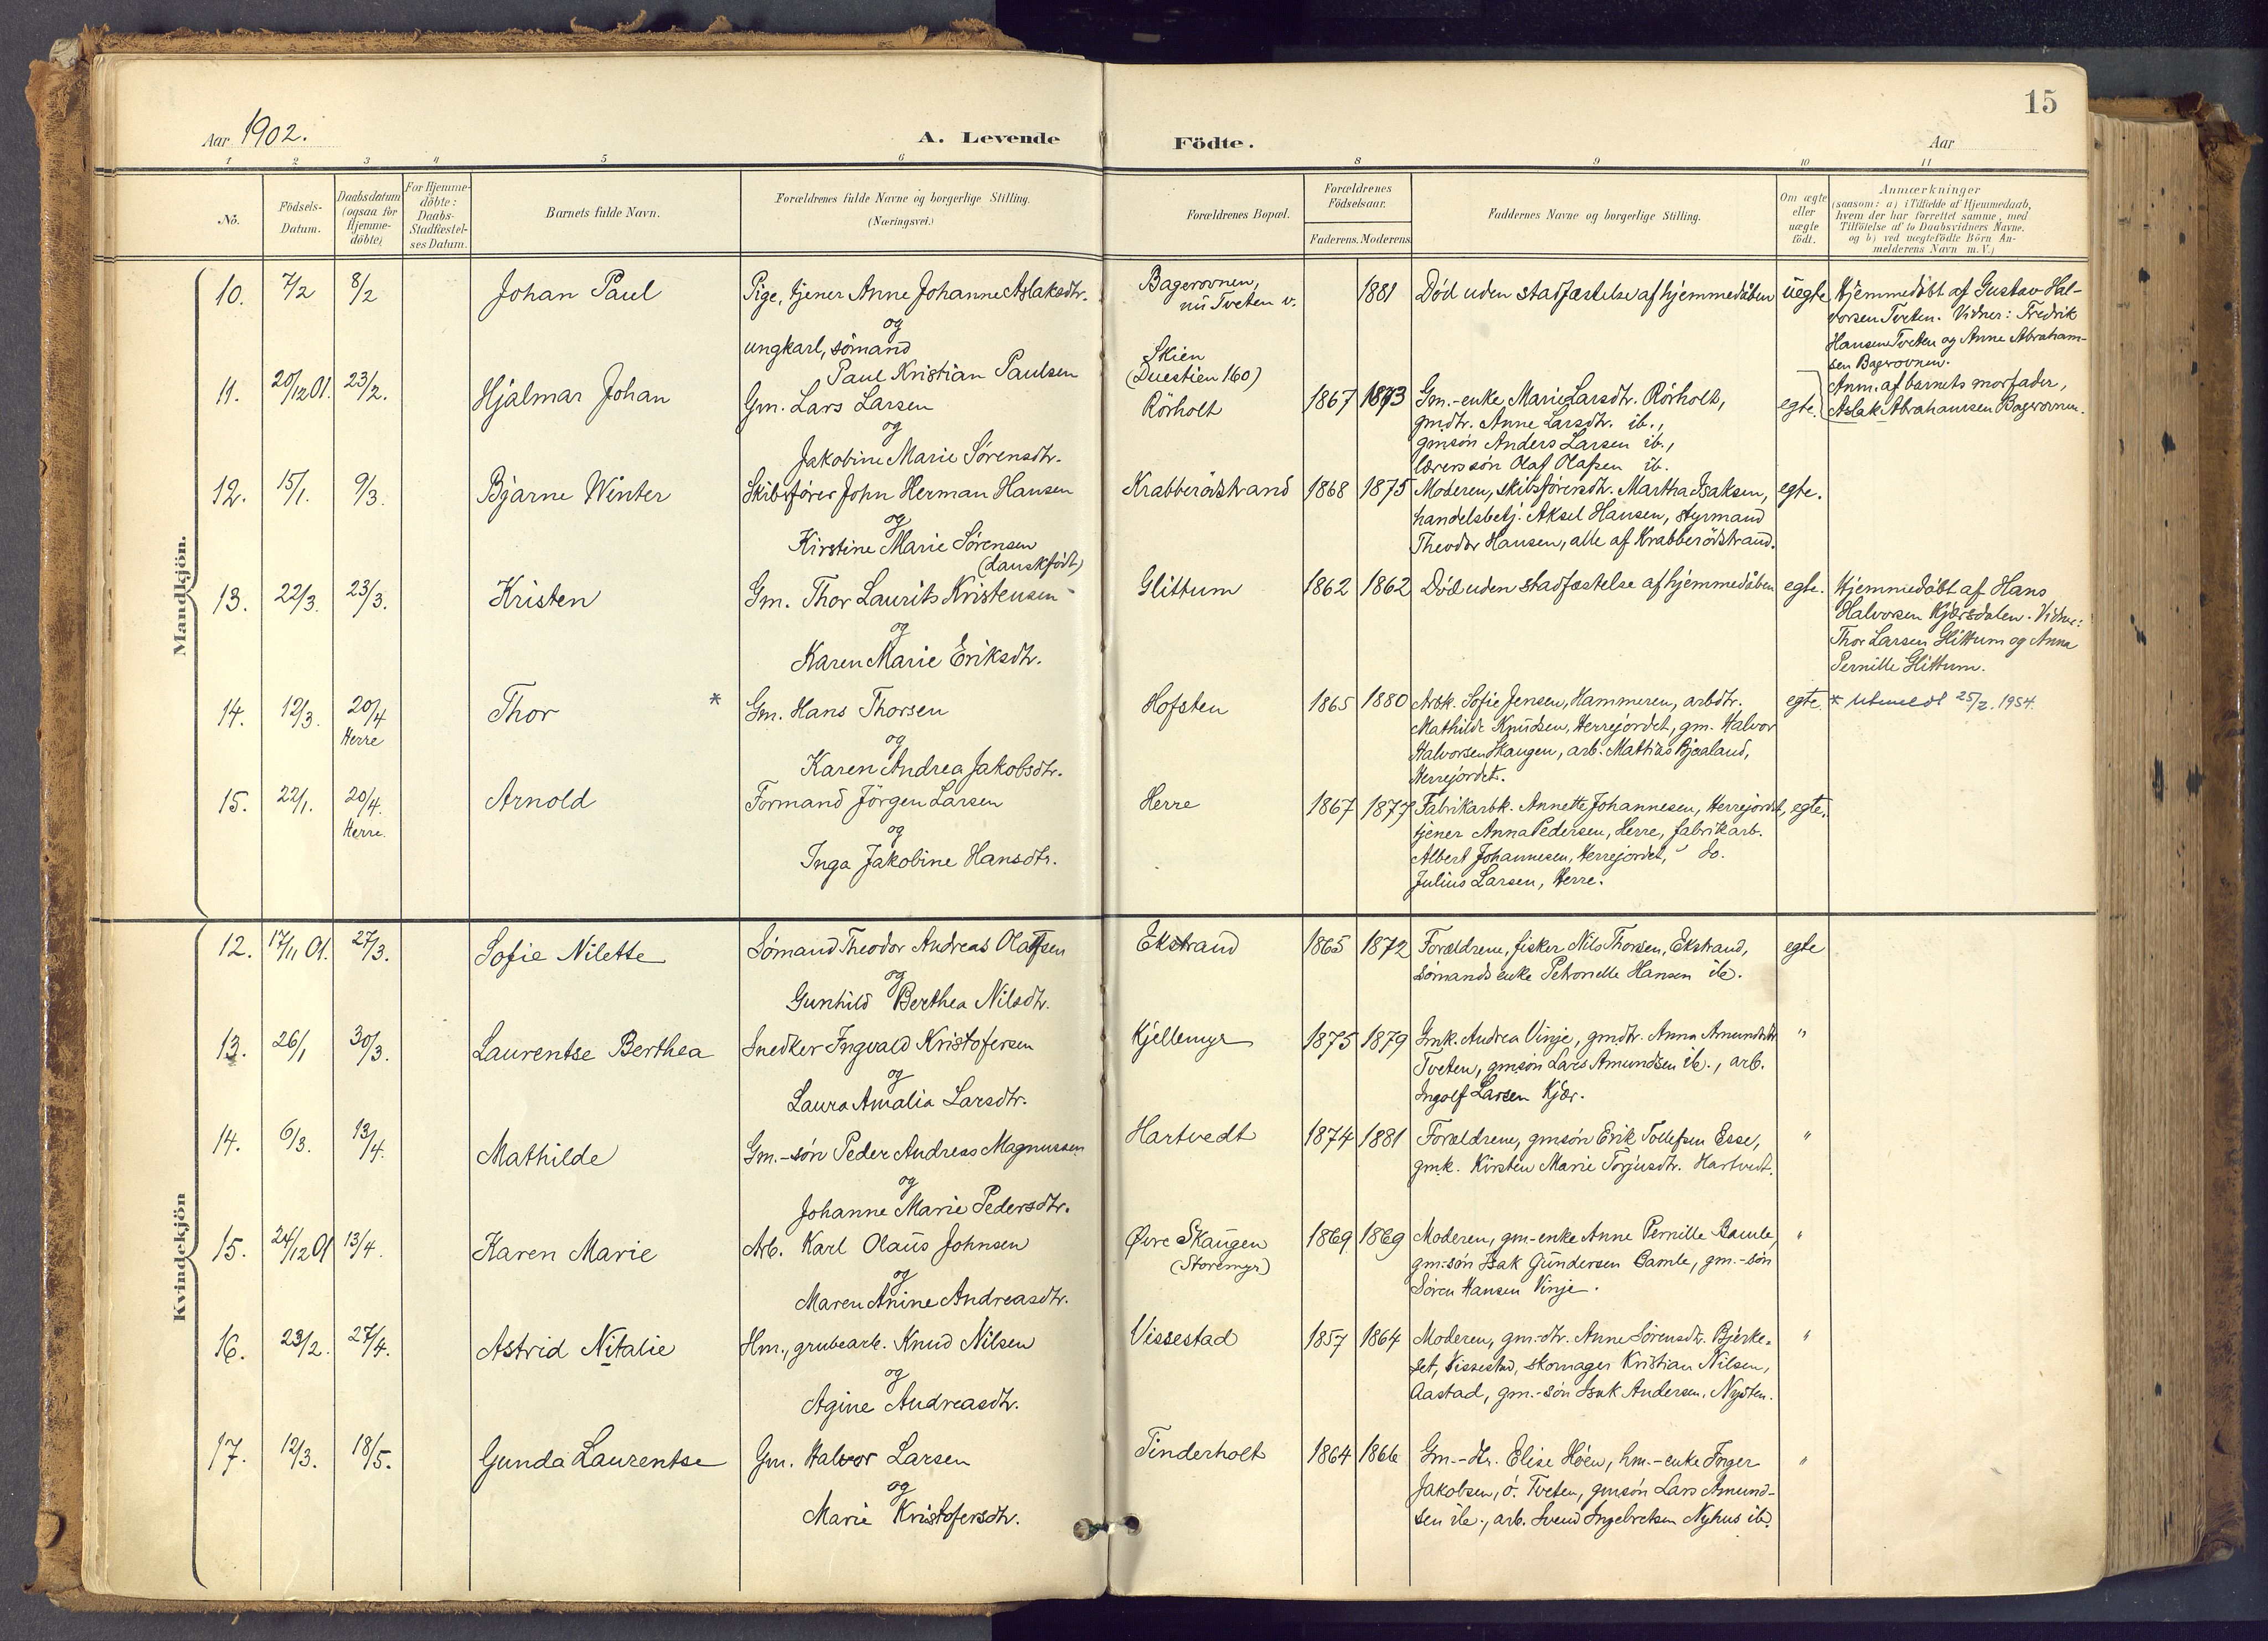 15
Aar 1902.
A. Levende Födte.
Aar
1 2 3 4 5 6 8 9 10 11
No.
Födsels-Datum.
Daabsdatum (ogsaa for Hjemme-döbte)
For Hjemme-döbte: Daabs-Stadfæstel-ses Datum.
Barnets fulde Navn.
Forældrenes fulde Navne og borgerlige Stilling. (Næringsvei.)
Forældrenes Bopæl.
Forældrenes Födselsaar.
Faderens. Moderens.
Faddernes Navne og borgerlige Stilling.
Om ægte eller uægte födt.
Anmærkninger
(saasom: a) i Tilfælde af Hjemmedaab,
hvem der har forrettet samme, med
Tilföielse af to Daabsvidners Navne.
og b) ved uægtefödte Börn An-
melderens Navn m.V.)
Mandkjön.
10. 7/2 8/2 Johan Paul
Pige, tjener Anne Johanne Aslaksdtr.
og
ungkarl, sömand
Paul Kristian Paulsen
Bagerovnen,
nu Tveten v.
Skien
(Duestien 160)
1881
Död uden stadfæstelse af hjemmedåben
uegte
Hjemmedöbt af Gustav Hal-
vorsen Tveten. Vidner: Fredrik
Hansen Tveten og Anne Abraham-
sen Bagerovnen.
Anm. af barnets morfader,
Aslak Abrahamsen Bagerovnen.
11. 20/12 01. 23/2. Hjalmar Johan
Gm. Lars Larsen
og
Jakobine Marie Sørensdtr.
Rörholt
1867 1873
Gm.-enke Marie Larsdtr. Rörholt,
gmdtr. Anne Larsdtr. ib.,
gmsön Anders Larsen ib.,
lærerssön Olaf Olafsen ib.
egte.
12. 15/1. 9/3. Bjarne Winter
Skibsfører John Herman Hansen
og
Kirstine Marie Sörensen
(danskfödt)
Krabberödstrand
1868 1875
Moderen, skibsförersdtr. Martha Isaksen,
handelsbetj. Aksel Hansen, styrmand
Theodor Hansen, alle af Krabberödstrand.
egte.
13. 22/3. 23/3. Kristen
Gm. Thor Laurits Kristensen
og
Karen Marie Eriksdtr.
Glittum
1862 1862
Död uden stadfæstelse af hjemmedåben
egte.
Hjemmedöbt af Hans
Halvorsen Kjærsdalen. Vidner:
Thor Larsen Glittum og Anna
Pernille Glittum.
14. 12/3. 20/4 Herre Thor *
Gm. Hans Thorsen
og
Karen Andrea Jakobsdtr.
Hofsten
1865 1880
Arbk. Sofie Jensen, Hammeren, arbdtr.
Mathilde Knudsen, Herrejordet, gm. Halvor
Halvorsen Skaugen, arb. Mathias Bjaaland,
Herrejordet.
egte.
* Utmeldt 25/2. 1954.
15. 22/1. 20/4. Herre. Arnold
Formand Jörgen Larsen
og
Inga Jakobine Hansdtr.
Herre
1867 1877
Fabrikarbk. Annette Johannesen, Herrejordet,
tjener Anna Pedersen, Herre, fabrikarb.
Albert Johannesen, Herrejordet, do.
Julius Larsen, Herre.
egte.
Kvindekjön
12. 17/11 01. 27/3. Sofie Nilette
Sömand Theodor Andreas Olafsen
og
Gunhild Berthea Nilsdtr.
Ekstrand
1865 1872
Forældrene, fisker Nils Thorsen, Ekstrand,
sömandsenke Petronelle Hansen ib.
egte
13. 26/1 30/3. Laurentse Berthea
Snedker Ingvald Kristofersen
og
Laura Amalia Larsdtr.
Kjellemyr
1875 1879
Gmk. Andrea Vinje, gmdtr. Anna Amundsdtr
Tveten, gmsön Lars Amundsen ib., arb.
Ingolf Larsen Kjær.
"
14. 6/3. 13/4. Mathilde
Gm.-sön Peder Andreas Magnussen
og
Johanne Marie Pedersdtr.
Hartvedt
1874 1881
Forældrene, gmsön Erik Tollefsen Esse,
gmk. Kirsten Marie Torjusdtr. Hartvedt.
"
15. 24/12 01 13/4. Karen Marie
Arb. Karl Olaus Johnsen
og
Maren Anine Andreasdtr.
Øvre Skaugen
(Storemyr)
1869 1869
Moderen, gm-enke Anne Pernille Bamle,
gm-sön Isak Gundersen Bamle, gm.-sön
Sören Hansen Vinje.
"
16. 23/2. 27/4. Astrid Nitalie
Hm., grubearb. Knud Nilsen
og
Agine Andreasdtr.
Vissestad
1857 1864
Moderen, gm-dtr. Anne Sörensdtr. Bjerke-
set, Vissestad, skomager Kristian Nilsen,
Aastad, gm.-sön Isak Andersen, Nysten.
"
17. 12/3. 18/5. Gunda Laurentse
Gm. Halvor Larsen
og
Marie Kristofersdtr.
Tinderholt
1864 1866
Gm.-dtr. Elise Höen, hm.-enke Inger
Jakobsen, ö. Tveten, gmsön Lars Amund-
sen ib., arb. Svend Ingebretsen Nyhus ib.
"